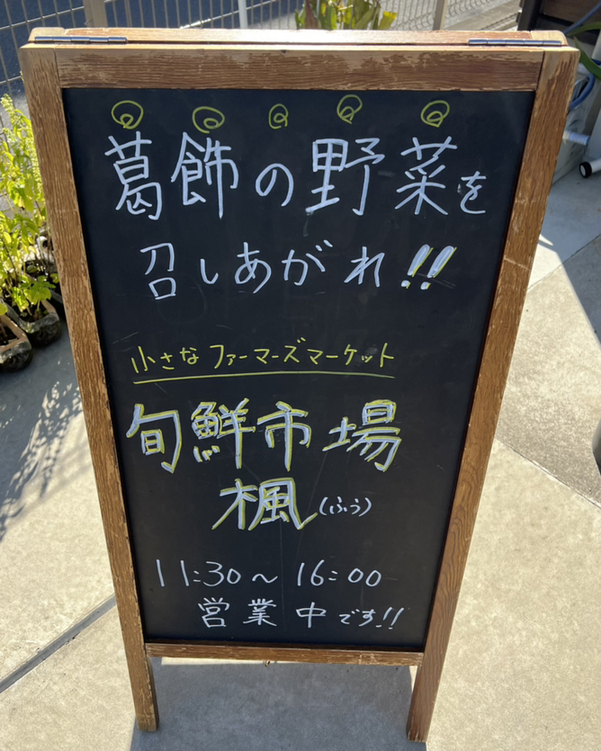 葛飾の野菜を
召しあがれ!!
小さなファーマーズマーケット
旬鮮市場
楓(ふう)
11:30〜16:00
営業中です!!